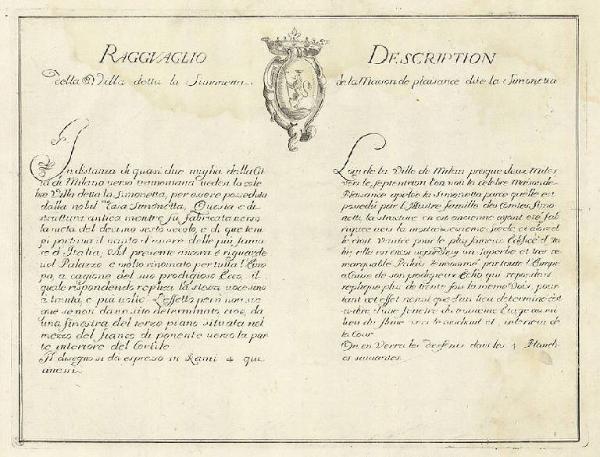 RAGGVAGLIO
della Villa detta la Simonetta
In distanza di quasi due miglia della Cit
tà di Milano verso tramontana vedesi la cele
bre Villa detta la Simonetta, per essere posseduta
dalla nobil Casa Simonetta. Questa è di
struttura antica mentre fu fabricata verso
la metà del decimo sesto secolo, e di que tem
pi portava il vanto d'essere delle più famo
se d'Italia, Al presente ancora è riguarde
vol Palazzo e molto rinomato per tutta l'Euro
pa, a cagione del suo prodigioso Eco, il
quale rispondendo replica la stessa voce sino
a trenta, e più volte L'effetto però non sie
gue se non da un sito determinato cioè, da
una finestra del terzo piano situata nel
mezzo del fianco di ponente verso la par
te interiore del Cortile
Il disegno si dà espresso in Rami 4 qui
annessi.
DESCRIPTION
de la Maison de plaisance dite la Simonetta
Loin de la Ville de Milan presque deux Milles
vers le septentrion l'on voit la célèbre Maison de
Plaisance apelée la Simonetta parce qu'elle est
possedù par l'Illustre famille des Comtes Simo
netta, la structure en est ancienne ayant eté fab
riquée vers la moitié du seizieme Siecle, et alors
le vant pour le plus fameux Edifice d'Ita
lie elle est encor aujourd'huy un superbe et très re
marquable Palais renommé par toute l'Europe
a Cause de son prodigieux Echo qui repondant
replique plus de trente fois la meme Voix, pour
tant cet effet n'ensuit que d'un lieu determiné c'est
a dire d'une fenetre du troisieme Etage au mi
lieu du flanc vers le occident et interieur de
la Cour
On en Verra les desseins dans les 4 Planch
es suivantes.